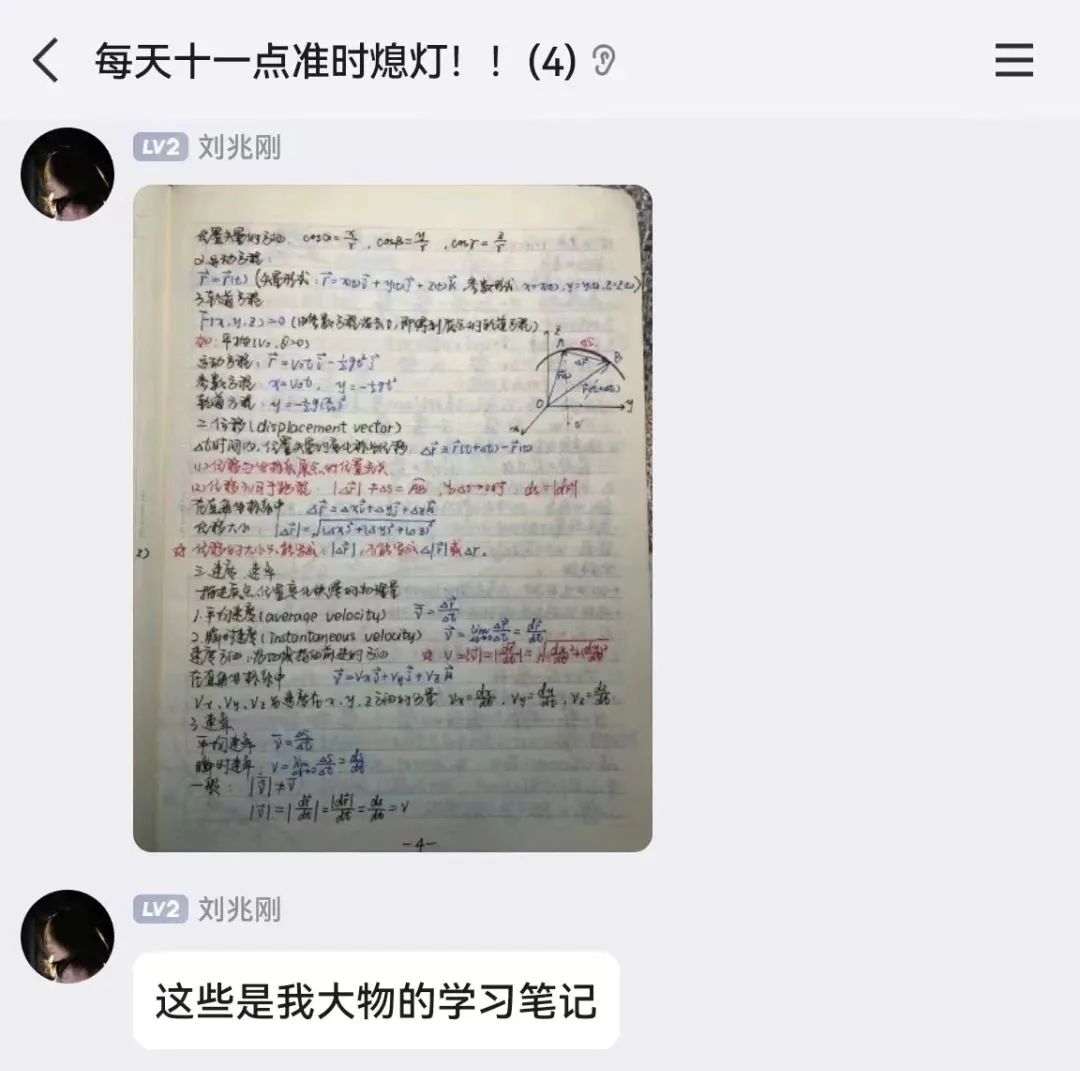 每天十一点准时熄灯！！(4)
LV2 刘兆刚
位置矢量的方向 cosα=x/r , cosβ=y/r , cosγ=z/r
2.运动方程：
r⃗=r⃗(t) (矢量形式：r⃗=x(t)i⃗+y(t)j⃗+z(t)k⃗ 参数形式 x=x(t), y=y(t), z=z(t))
3.轨道方程
F(x,y,z)=0 (由参数方程消去t,即得到质点的轨道方程)
如：平抛(v₀,θ=0)
运动方程：r⃗=v₀ti⃗-½gt²j⃗
参数方程：x=v₀t, y=-½gt²
轨道方程：y=-½g(x/v₀)²
z
A
Δs
B
Δr⃗
r⃗(t)
r⃗(t+Δt)
O
y
x
二.位移(displacement vector)
Δt时间内,位置矢量的变化称为位移 Δr⃗=r⃗(t+Δt)-r⃗(t)
(1)位移与坐标系原点的位置无关
(2)位移不同于路程 |Δr⃗|≠Δs=AB, 当Δt→0时, ds=|dr⃗|
在直角坐标系中 Δr⃗=Δxi⃗+Δyj⃗+Δzk⃗
位移大小 |Δr⃗|=√((Δx)²+(Δy)²+(Δz)²)
2) ☆ 位移的大小只能写成：|Δr⃗|,不能写成Δ|r⃗|或Δr.
三.速度 速率
描述质点位置变化快慢的物理量
1.平均速度(average velocity) v⃗=Δr⃗/Δt
2.瞬时速度(instantaneous velocity) v⃗=lim Δt→0 Δr⃗/Δt=dr⃗/dt
速度方向：沿切线指向前进的方向 ☆ v=|v⃗|=|dr⃗/dt|
在直角坐标系中 v⃗=vxi⃗+vyj⃗+vzk⃗
vx、vy、vz为速度在x、y、z方向的分量 vx=dx/dt, vy=dy/dt, vz=dz/dt
3.速率
平均速率 v̄=Δs/Δt
瞬时速率 v=lim Δt→0 Δs/Δt=ds/dt
一般：|v̄⃗|≠v̄
|v⃗|=|dr⃗/dt|=|dr⃗|/dt=ds/dt=v
-4-
LV2 刘兆刚
这些是我大物的学习笔记